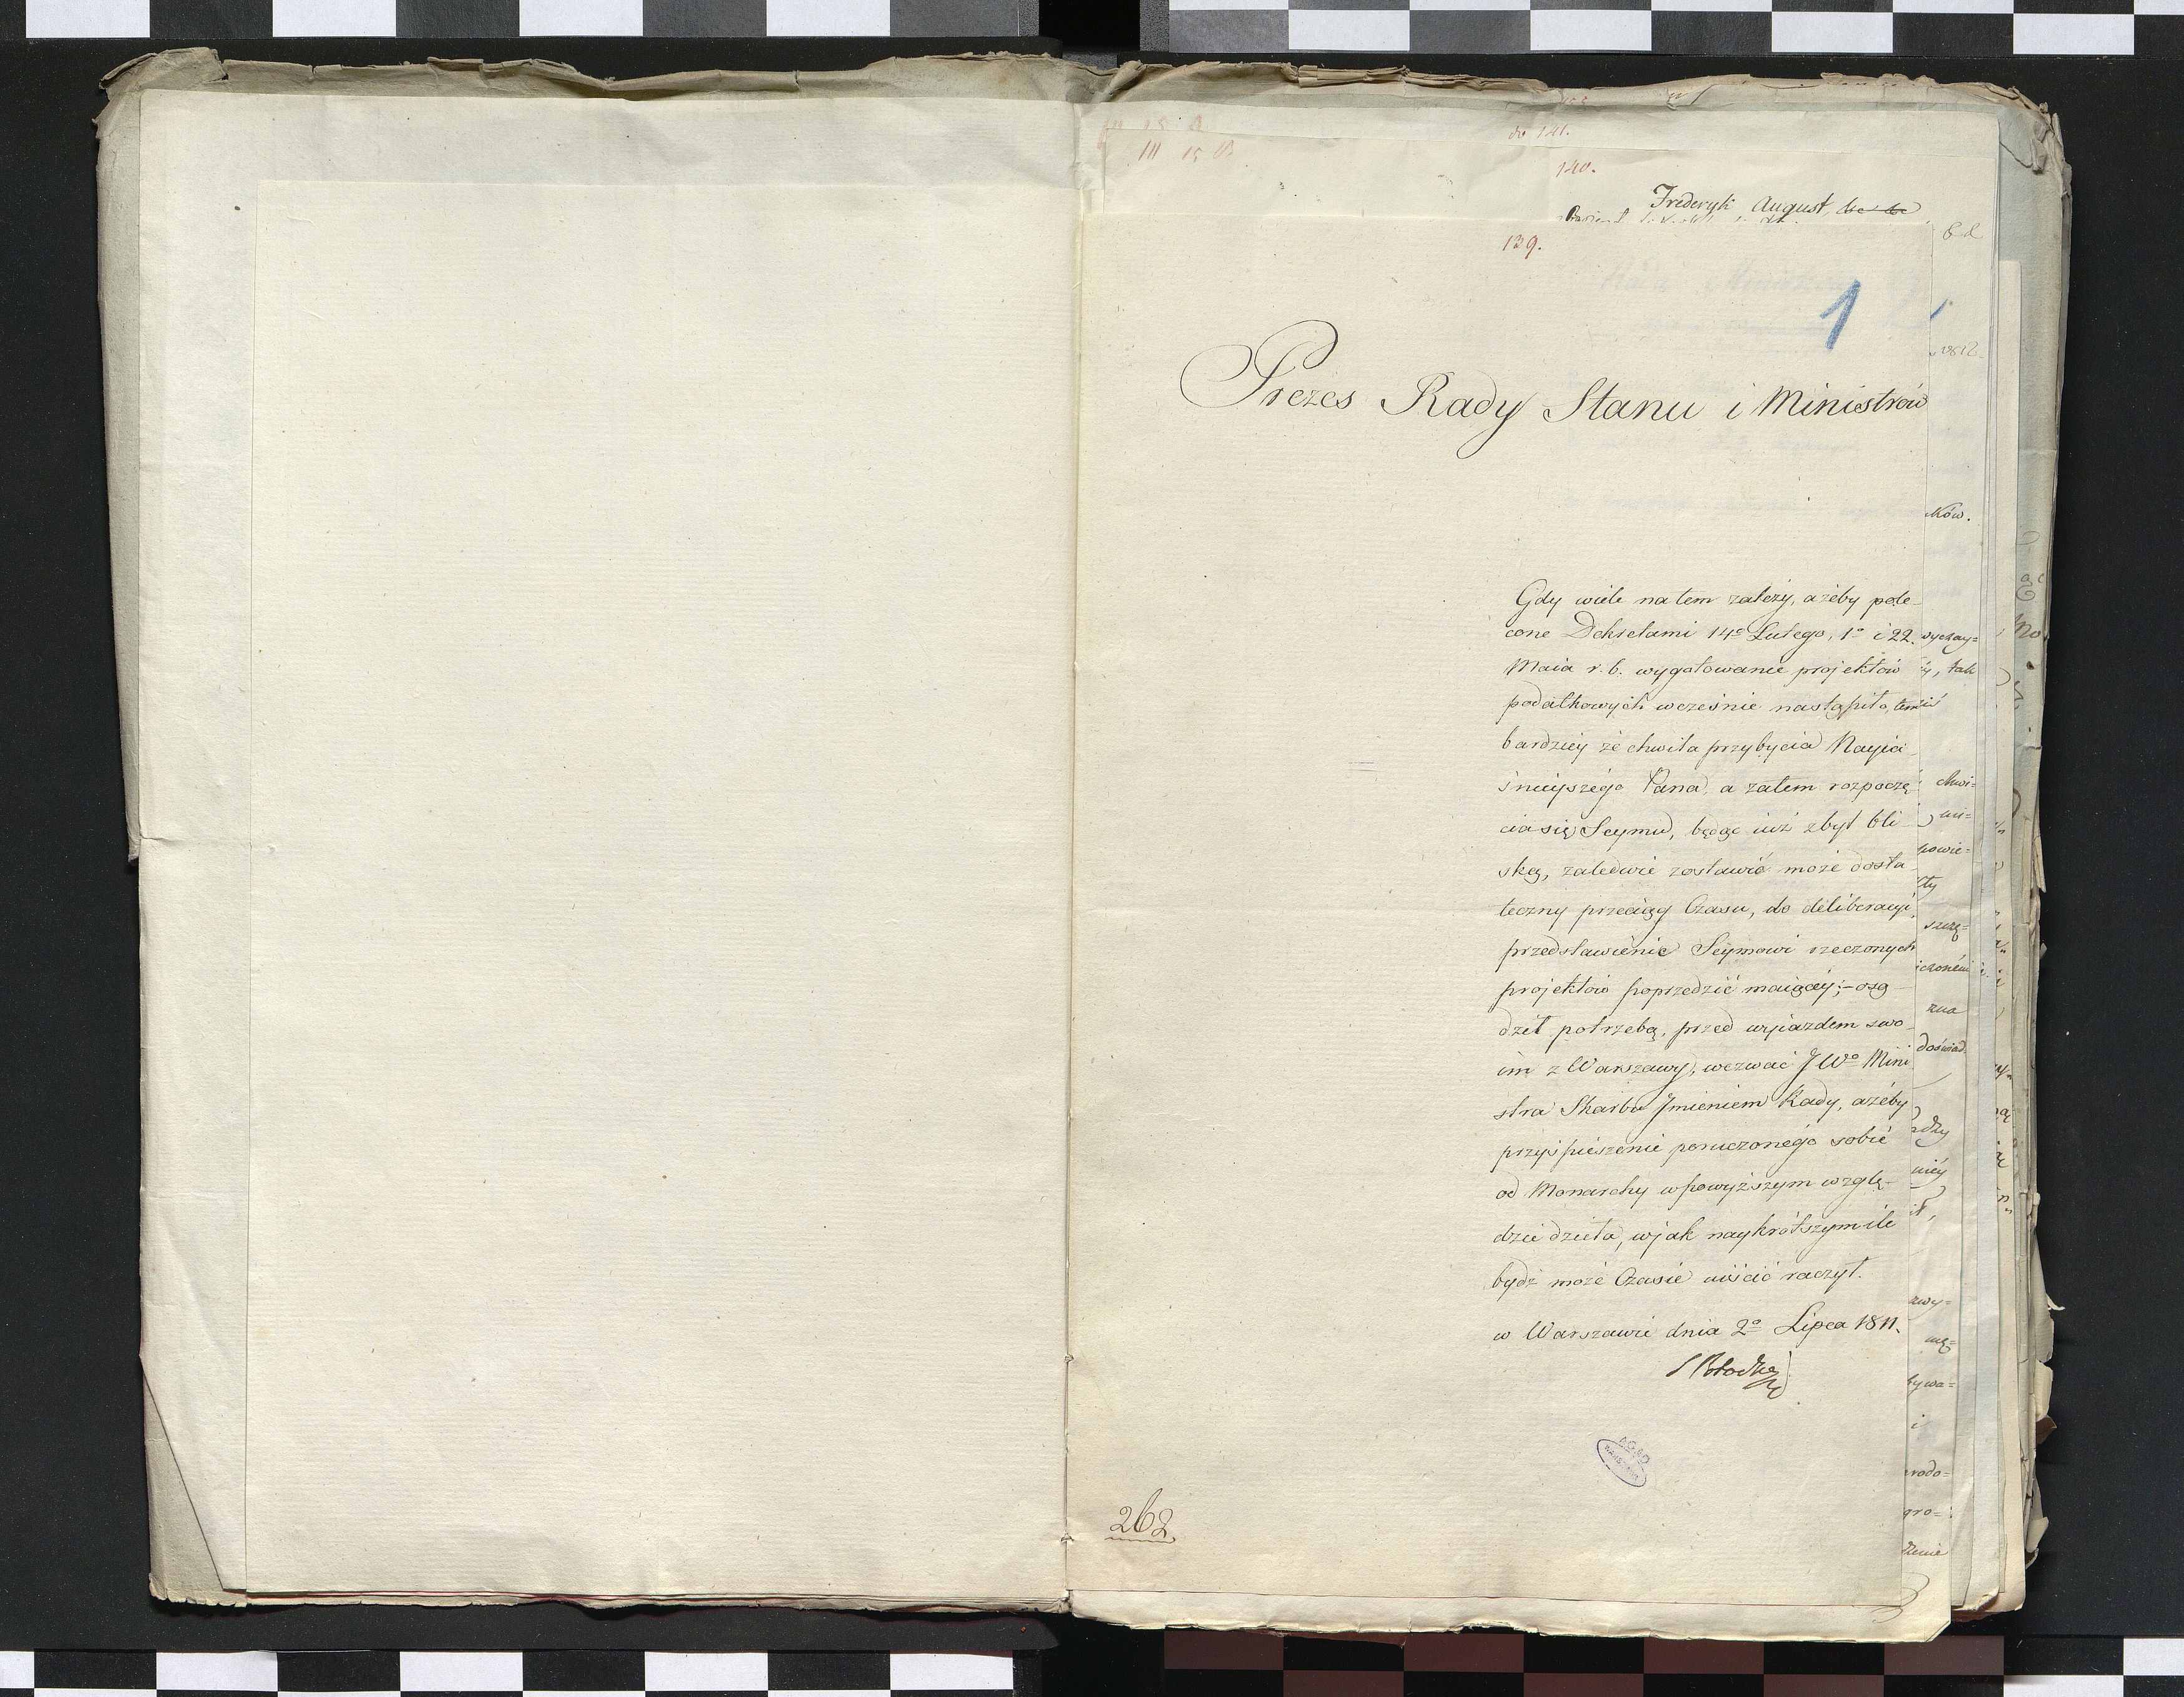 III 15 B
do 141.
140.
Frederyk August, &c &c
139.
1
1812.
Prezes Rady Stanu i Ministrów
ków.
Gdy wiele na tem zależy, ażeby pole-
cone Dekretami 14º Lutego, 1º i 22.
Maia r. b. wygotowanie projektów
podatkowych wcześnie nastąpiło, tem
bardziey że chwila przybycia Nayia-
śnieyszego Pana, a zatem rozpoczę-
cia się Seymu, będąc iuż zbyt bli-
ską, zaledwie zostawić może dosta-
teczny przeciąg Czasu, do deliberacyi,
przedstawienie Seymowi rzeczonych
projektów poprzedzić maiącéy; - osą-
dził potrzebą, przed wyiazdem swo-
im z Warszawy, wezwać JWº Mini-
stra Skarbu Jmieniem Rady, ażeby
przyśpieszenie poruczonego sobie
od Monarchy w powyższym wzglę-
dzie dzieła, w jak naykrótszym ile
bydź może Czasie uiścić raczył.
w Warszawie dnia 2º Lipca 1811.
S Potocki
wyczay=
tak
chwi=
powie=
szczę=
doświad
zwy=
bywa=
i
rodo=
gro=
AGAD
WARSZAWA
262.